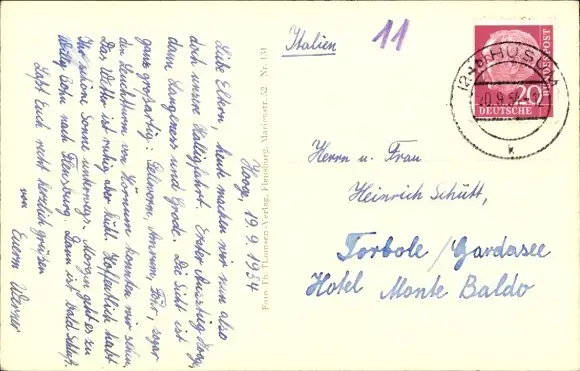 Hooge, 19.9.1954
Liebe Eltern, heute machen wir nun also
doch unsere Halligfahrt. Erster Ausstieg Hooge,
dann Langeness und Gröde. Die Sicht ist
ganz großartig: Pellworm, Amrum, Föhr, sogar
den Leuchtturm von Hörnum konnten wir sehen.
Das Wetter ist ruhig aber kühl. Hoffentlich habt
Ihr schöne Sonne unterwegs. Morgen geht es zu
Willy Bohn nach Flensburg. Dann ist bald Schluß.
Laßt Euch recht herzlich grüßen
von Euerm Werner
Foto: Th. Thomsen-Verlag, Flensburg, Marienstr. 52 Nr. 131
Italien
11
DEUTSCHE BUNDESPOST
20
HUSUM
Herrn u. Frau
Heinrich Schütt,
Torbole / Gardasee
Hotel Monte Baldo